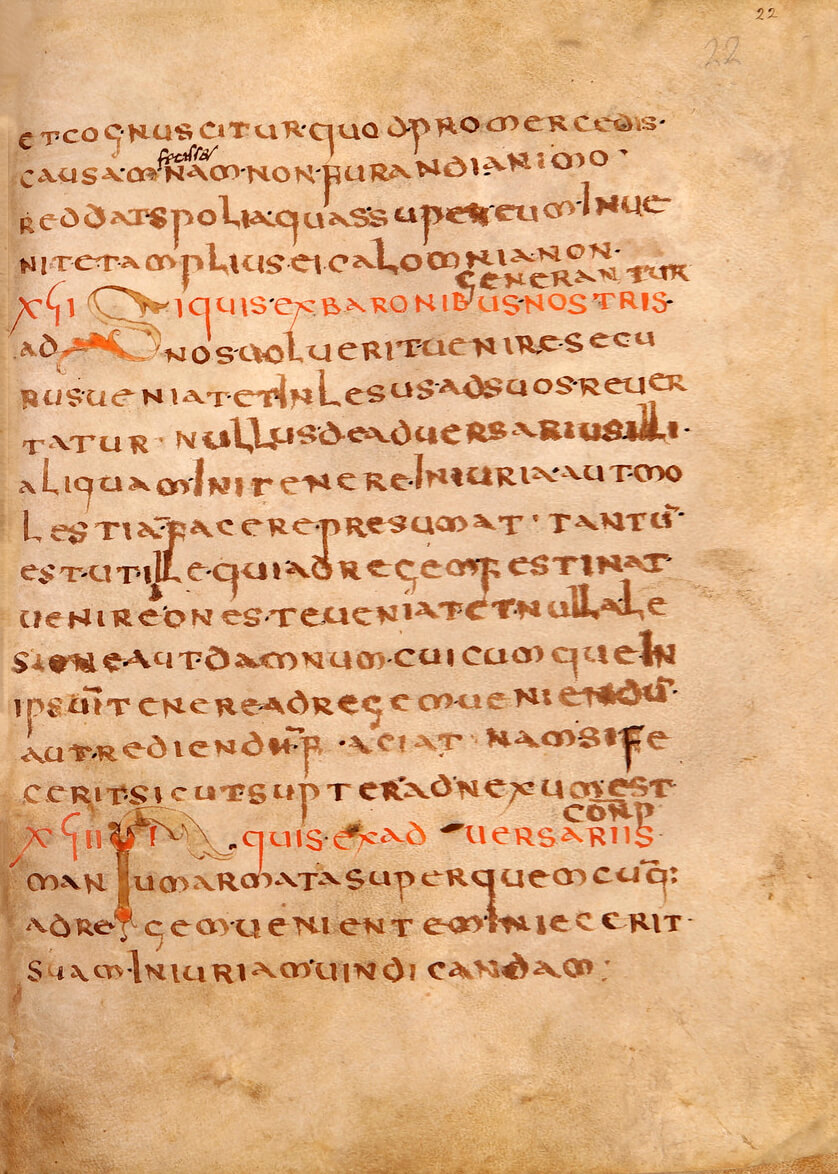 22
22
et cognuscitur quod pro mercedis·
causam fecissit nam·non furandi animo·
reddat spolia quas super eum inve
nit et amplius ei calomnia non·
generantur
XVII Si quis ex baronibus nostris·
ad nos voluerit venire·secu
rus veniat et inlesus ad suos rever
tatur· nullus de adversarius illi·
aliquam in itenere iniuria·aut mo
lestia facere presumat· tantū·
est·ut ille·qui ad regem festinat·
venire oneste veniat et nulla le
sione aut damnum·cuicumque in
ipsū itenere ad regem veniendū·
aut rediendū·faciat· nam si fe
cerit sicut supter adnexum est·
conp̄
XVIII Si quis ex adversariis
manu armata super quemcūq:
ad regem venientem iniecerit·
suam·iniuriam vindicandam: